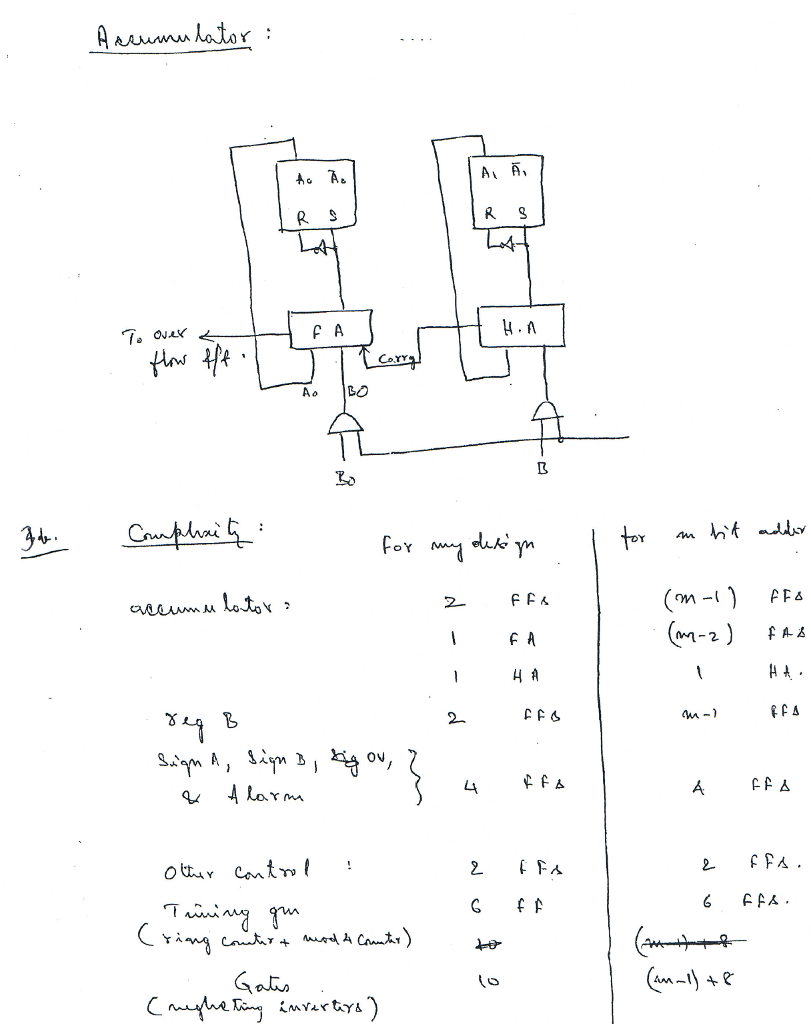 Accumulator :
A₀ Ā₀
R S
A₁ Ā₁
R S
To over
flow f/f.
F A
Carry
H.A
A₀
B0
B₀
B
3b.
Complexity :
for my design
for m bit adder
accumulator :
2 FFs
(m-1) FFs
1 FA
(m-2) FAs
1 HA
1 HA.
reg B
2 FFs
m-1 FFs
Sign A, Sign B, OV,
& Alarm
4 FFs
4 FFs
Other control :
2 FFs
2 FFs.
Timing gen
6 FF
6 FFs.
(ring counter + mod 4 counter)
10
(m-1)+8
Gates
10
(m-1)+8
(neglecting inverters)